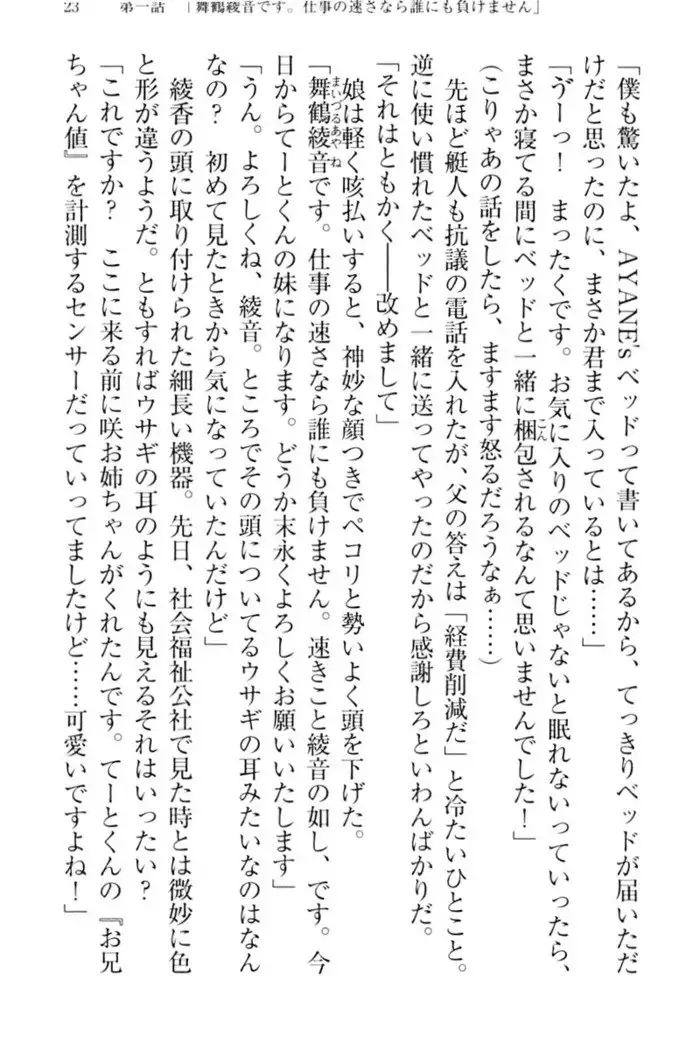 23　第一話　「舞鶴綾音です。仕事の速さなら誰にも負けません」
「僕も驚いたよ、AYANE'sベッドって書いてあるから、てっきりベッドが届いただ
けだと思ったのに、まさか君まで入っているとは……」
「ゔーっ！　まったくです。お気に入りのベッドじゃないと眠れないっていったら、
まさか寝てる間にベッドと一緒に梱包されるなんて思いませんでした！」
（こりゃあの話をしたら、ますます怒るだろうなぁ……）
　先ほど艇人も抗議の電話を入れたが、父の答えは「経費削減だ」と冷たいひとこと。
逆に使い慣れたベッドと一緒に送ってやったのだから感謝しろといわんばかりだ。
「それはともかく――改めまして」
　娘は軽く咳払いすると、神妙な顔つきでペコリと勢いよく頭を下げた。
「舞鶴綾音です。仕事の速さなら誰にも負けません。速きこと綾音の如し、です。今
日からてーとくんの妹になります。どうか末永くよろしくお願いいたします」
「うん。よろしくね、綾音。ところでその頭についてるウサギの耳みたいなのはなん
なの？　初めて見たときから気になっていたんだけど」
　綾香の頭に取り付けられた細長い機器。先日、社会福祉公社で見た時とは微妙に色
と形が違うようだ。ともすればウサギの耳のようにも見えるそれはいったい？
「これですか？　ここに来る前に咲お姉ちゃんがくれたんです。てーとくんの『お兄
ちゃん値』を計測するセンサーだっていってましたけど……可愛いですよね！」